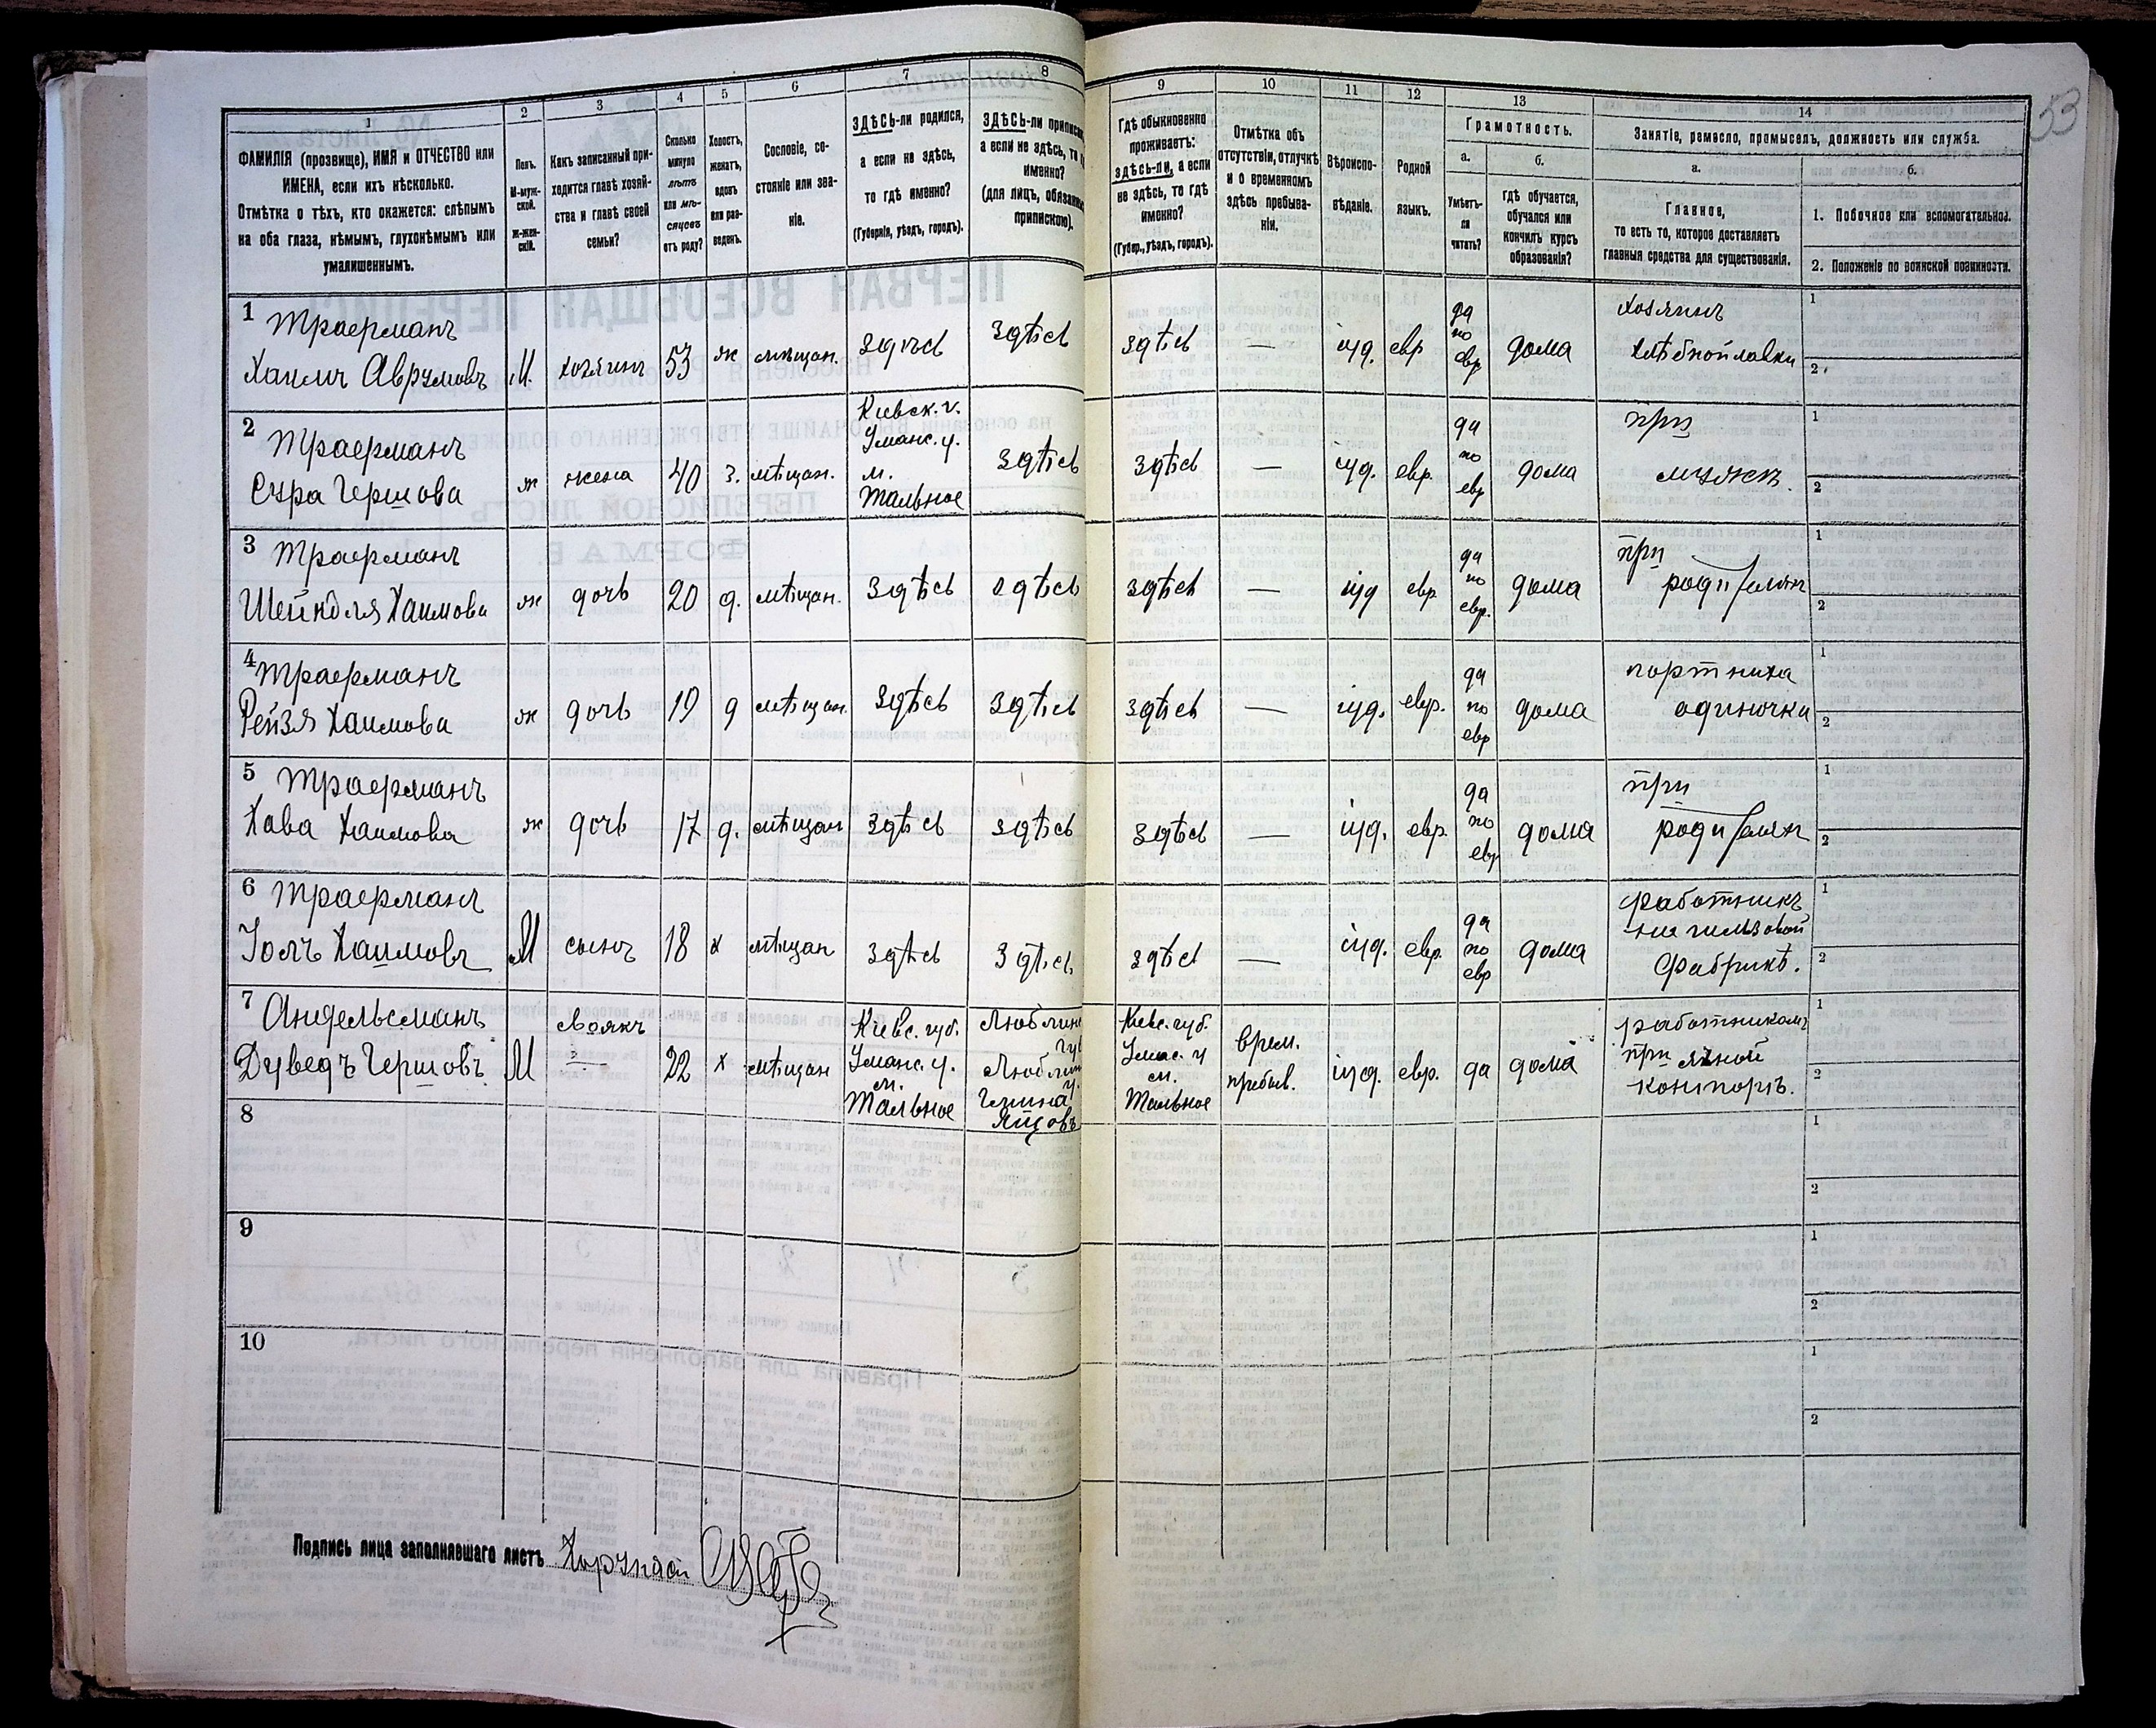 53
1 2 3 4 5 6 7 8 9 10 11 12 13 14
ФАМИЛІЯ (прозвище), ИМЯ и ОТЧЕСТВО или
ИМЕНА, если ихъ нѣсколько.
Отмѣтка о тѣхъ, кто окажется: слѣпымъ
на оба глаза, нѣмымъ, глухонѣмымъ или
умалишеннымъ.
Полъ.
М-муж-
ской.
Ж-жен-
скій.
Какъ записанный при-
ходится главѣ хозяй-
ства и главѣ своей
семьи?
Сколько
минуло
лѣтъ
или мѣ-
сяцевъ
отъ роду?
Холостъ,
женатъ,
вдовъ
или раз-
веденъ.
Сословіе, со-
стояніе или зва-
ніе.
ЗДѢСЬ-ли родился,
а если не здѣсь,
то гдѣ именно?
(Губернія, уѣздъ, городъ).
ЗДѢСЬ-ли приписан
а если не здѣсь, то г
именно?
(для лицъ, обязанны
припискою).
Гдѣ обыкновенно
проживаетъ:
здѣсь-ли, а если
не здѣсь, то гдѣ
именно?
(Губер., уѣздъ, городъ).
Отмѣтка объ
отсутствіи, отлучкѣ
и о временномъ
здѣсь пребыва-
ніи.
Вѣроиспо-
вѣданіе.
Родной
языкъ.
Грамотность.
а.
Умѣетъ-
ли
читать?
б.
гдѣ обучается,
обучался или
кончилъ курсъ
образованія?
Занятіе, ремесло, промыселъ, должность или служба.
а.
Главное,
то есть то, которое доставляетъ
главныя средства для существованія.
б.
1. Побочное или вспомогательное.
2. Положеніе по воинской повинности.
1 Траерманъ
Хаимъ Аврумовъ М. хозяинъ 53 ж мѣщан. здѣсь здѣсь здѣсь — іуд. евр да по евр дома хозяинъ
хлѣбной лавки
1
2
2 Траерманъ
Сура Гершова ж жена 40 з. мѣщан. Кіевск. г.
Уманс. у.
м.
Тальное
здѣсь здѣсь — іуд. евр. да по евр дома при
мужѣ
1
2
3 Траерманъ
Шейндля Хаимова ж дочь 20 д. мѣщан. здѣсь здѣсь здѣсь — іуд евр. да по евр. дома при
родителяхъ
1
2
4 Траерманъ
Рейзя Хаимова ж дочь 19 д мѣщан. здѣсь здѣсь здѣсь — іуд. евр. да по евр дома портниха
одиночка
1
2
5 Траерманъ
Хава Хаимова ж дочь 17 д. мѣщан здѣсь здѣсь здѣсь — іуд. евр. да по евр дома при
родителях
1
2
6 Траерманъ
Іолъ Хаимовъ М сынъ 18 х мѣщан здѣсь здѣсь здѣсь — іуд. евр. да по евр дома работникъ
на гильзовой
фабрикѣ.
1
2
7 Андельсманъ
Дуведъ Гершовъ М своякъ 22 х мѣщан Кіевс. губ.
Уманс. у.
м.
Тальное
Люблин
губ
Люблин
у.
Гмина
Кіевс. губ.
Уманс. у
м.
Тальное
врем.
пребыв.
іуд. евр. да дома работникомъ
при
конторѣ.
1
2
8
1
2
9
1
2
10
1
2
Подпись лица заполнявшаго листъ